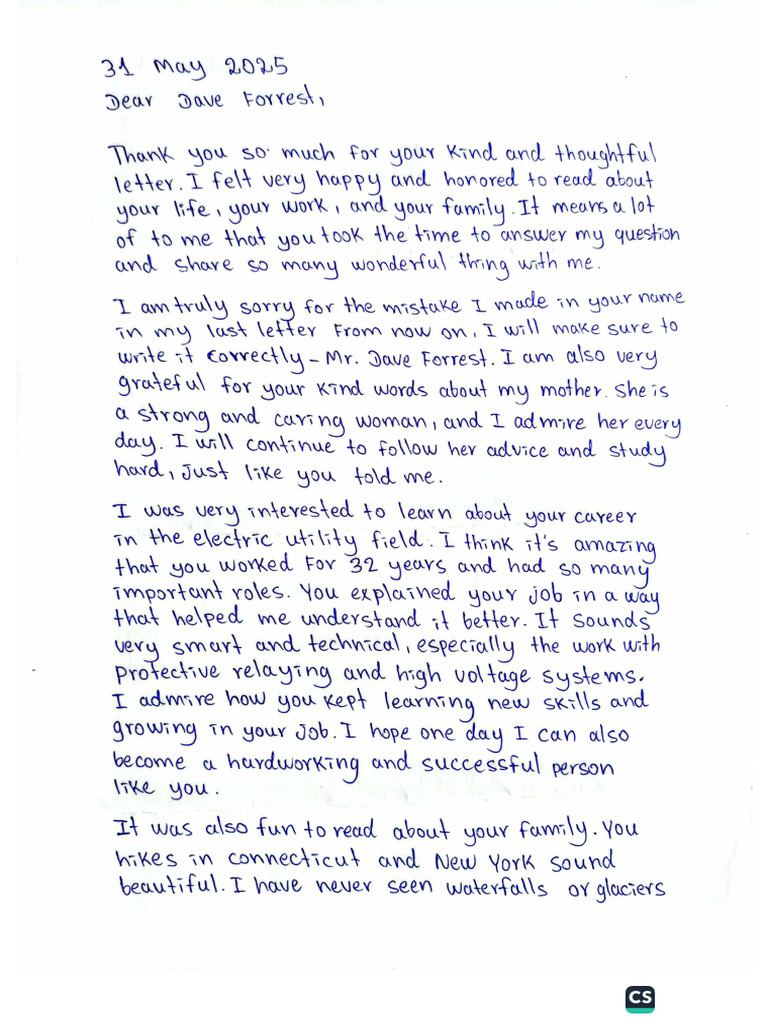 31 May 2025
Dear Dave Forrest,
Thank you so much for your kind and thoughtful
letter. I felt very happy and honored to read about
your life, your work, and your family. It means a lot
of to me that you took the time to answer my question
and share so many wonderful thing with me.
I am truly sorry for the mistake I made in your name
in my last letter From now on, I will make sure to
write it correctly - Mr. Dave Forrest. I am also very
grateful for your kind words about my mother. She is
a strong and caring woman, and I admire her every
day. I will continue to follow her advice and study
hard, just like you told me.
I was very interested to learn about your career
in the electric utility field. I think it's amazing
that you worked for 32 years and had so many
important roles. You explained your job in a way
that helped me understand it better. It sounds
very smart and technical, especially the work with
protective relaying and high voltage systems.
I admire how you kept learning new skills and
growing in your job. I hope one day I can also
become a hardworking and successful person
like you.
It was also fun to read about your family. You
hikes in connecticut and New York sound
beautiful. I have never seen waterfalls or glaciers
CS